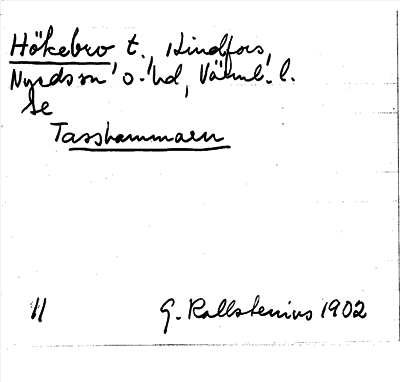 Hökebro t., Hindfors,
Nyedsson o. hd, Värml. l.
Se
Tasshammaren
11 G. Kallstenius 1902